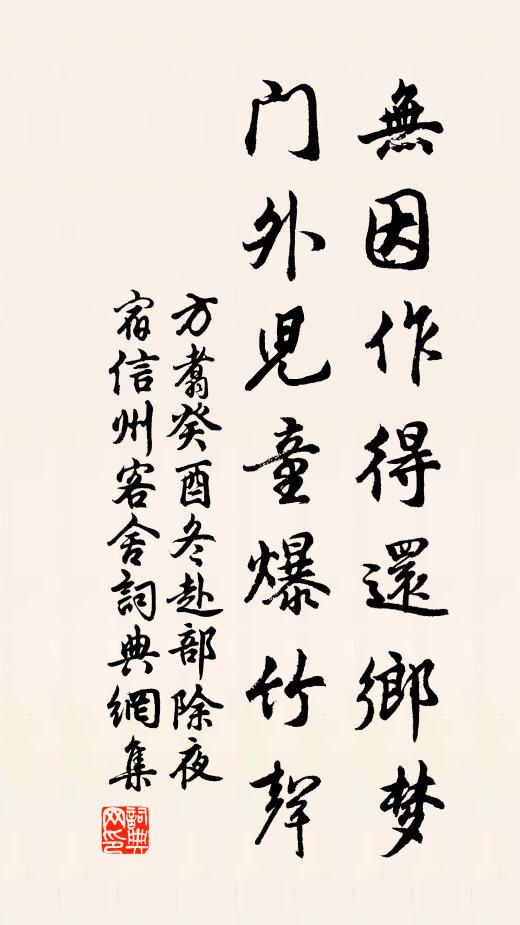 無因作得還鄉梦
门外児童爆竹聲
方翥癸酉冬赴部除夜
宿信州客舍詞典網集
詞典
网印